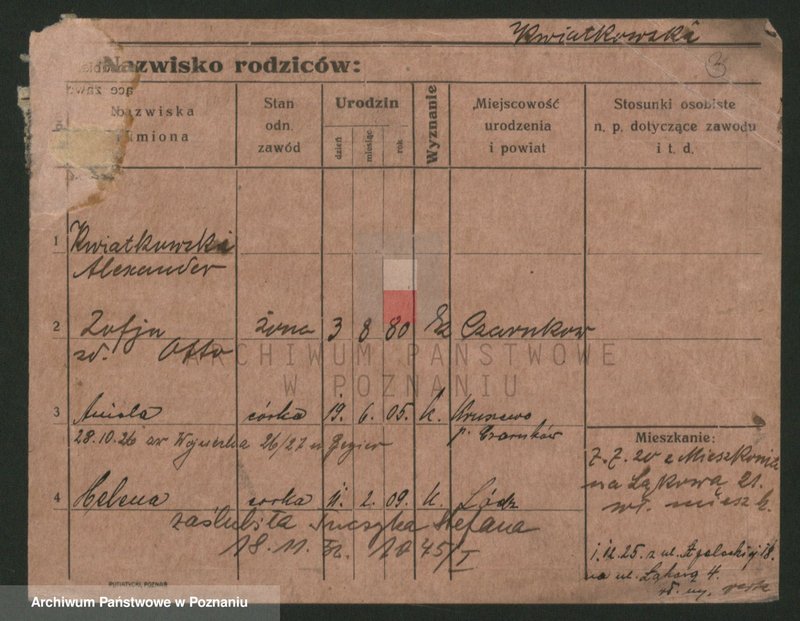 Kwiatkowski
3
Nazwisko rodziców:
Nazwiska
imiona
Stan
odn.
zawód
Urodzin
dzień
miesiąc
rok
Wyznanie
Miejscowość
urodzenia
i powiat
Stosunki osobiste
n. p. dotyczące zawodu
i t. d.
1 Kwiatkowski
Alexander
2 Zofja żona 3 8 80 Czarnkow
zd. Otto
ARCHIWUM PAŃSTWOWE
W POZNANIU
3 Aniela córka 19. 6. 05. k. Kruszewo
28.10.26 26/27 u p. Czarnków
Mieszkanie:
7. 7. 20 z
na Łąkową 21.
wł. mieszk.
4 Helena corka 11. 2. 09. k. Łódz
zaślubiła Stefana
18. 11. 1045/I
1.12.25. z ul. 18.
na ul. Łąkową 4.
PUTIATYCKI, POZNAŃ
Archiwum Państwowe w Poznaniu